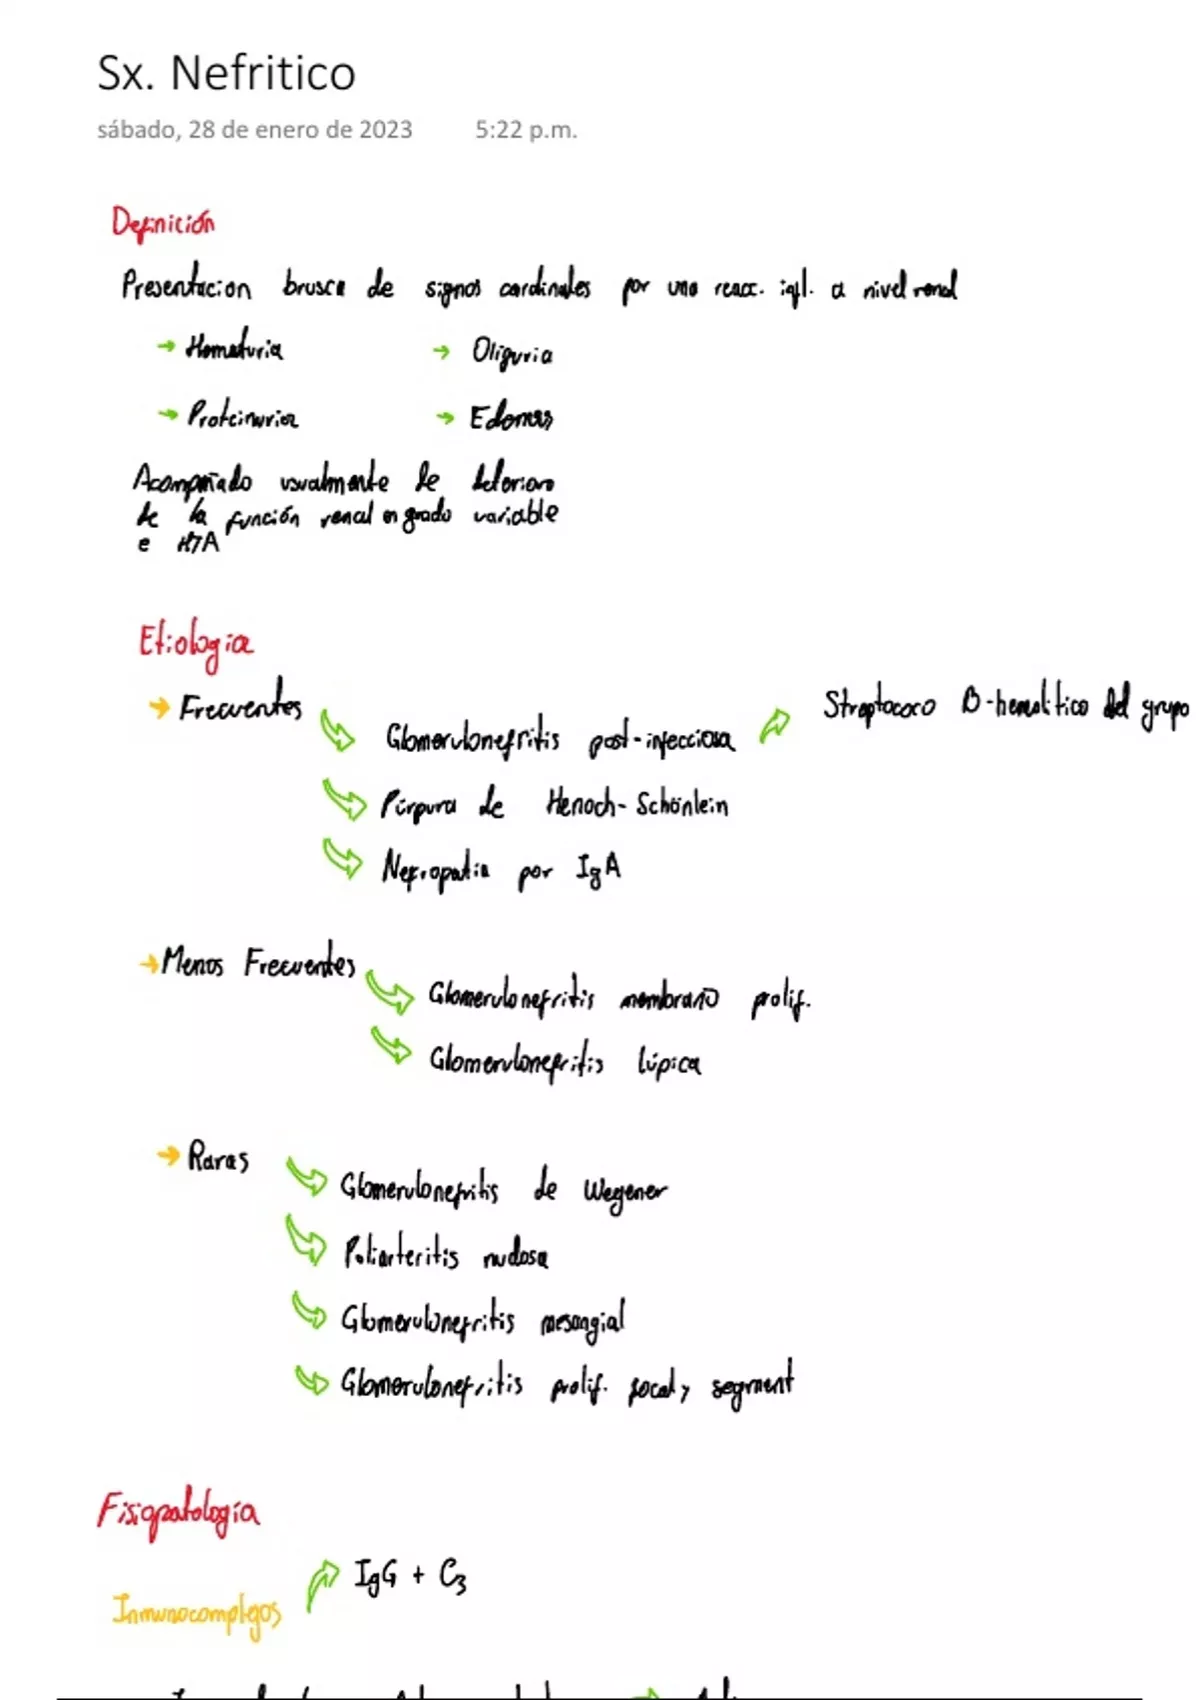 Sx. Nefritico
sábado, 28 de enero de 2023 5:22 p.m.
Definición
Presentacion brusca de signos cardinales por una reacc. infl. a nivel renal
→ Hematuria → Oliguria
→ Proteinuria → Edemas
Acompañado usualmente de deterioro
de la función renal en grado variable
e HTA
Etiologia
→ Frecuentes
Glomerulonefritis post-infecciosa Streptococo B-hemolitico del grupo
Púrpura de Henoch-Schönlein
Nefropatia por IgA
→ Menos Frecuentes
Glomerulonefritis membrano prolif.
Glomerulonefritis lúpica
→ Raras
Glomerulonefritis de Wegener
Poliarteritis nudosa
Glomerulonefritis mesangial
Glomerulonefritis prolif. focal y segment
Fisiopatología
IgG + C3
Inmunocomplejos